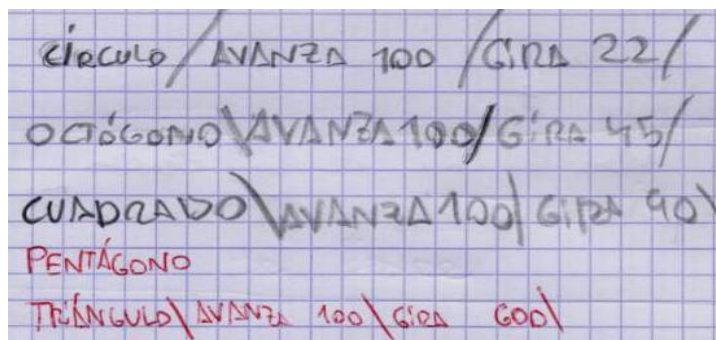 CÍRCULO / AVANZA 100 / GIRA 22 /
OCTÓGONO \ AVANZA 100 / GIRA 45 /
CUADRADO \ AVANZA 100 | GIRA 90 \
PENTÁGONO
TRIÁNGULO \ AVANZA 100 \ GIRA 600 \